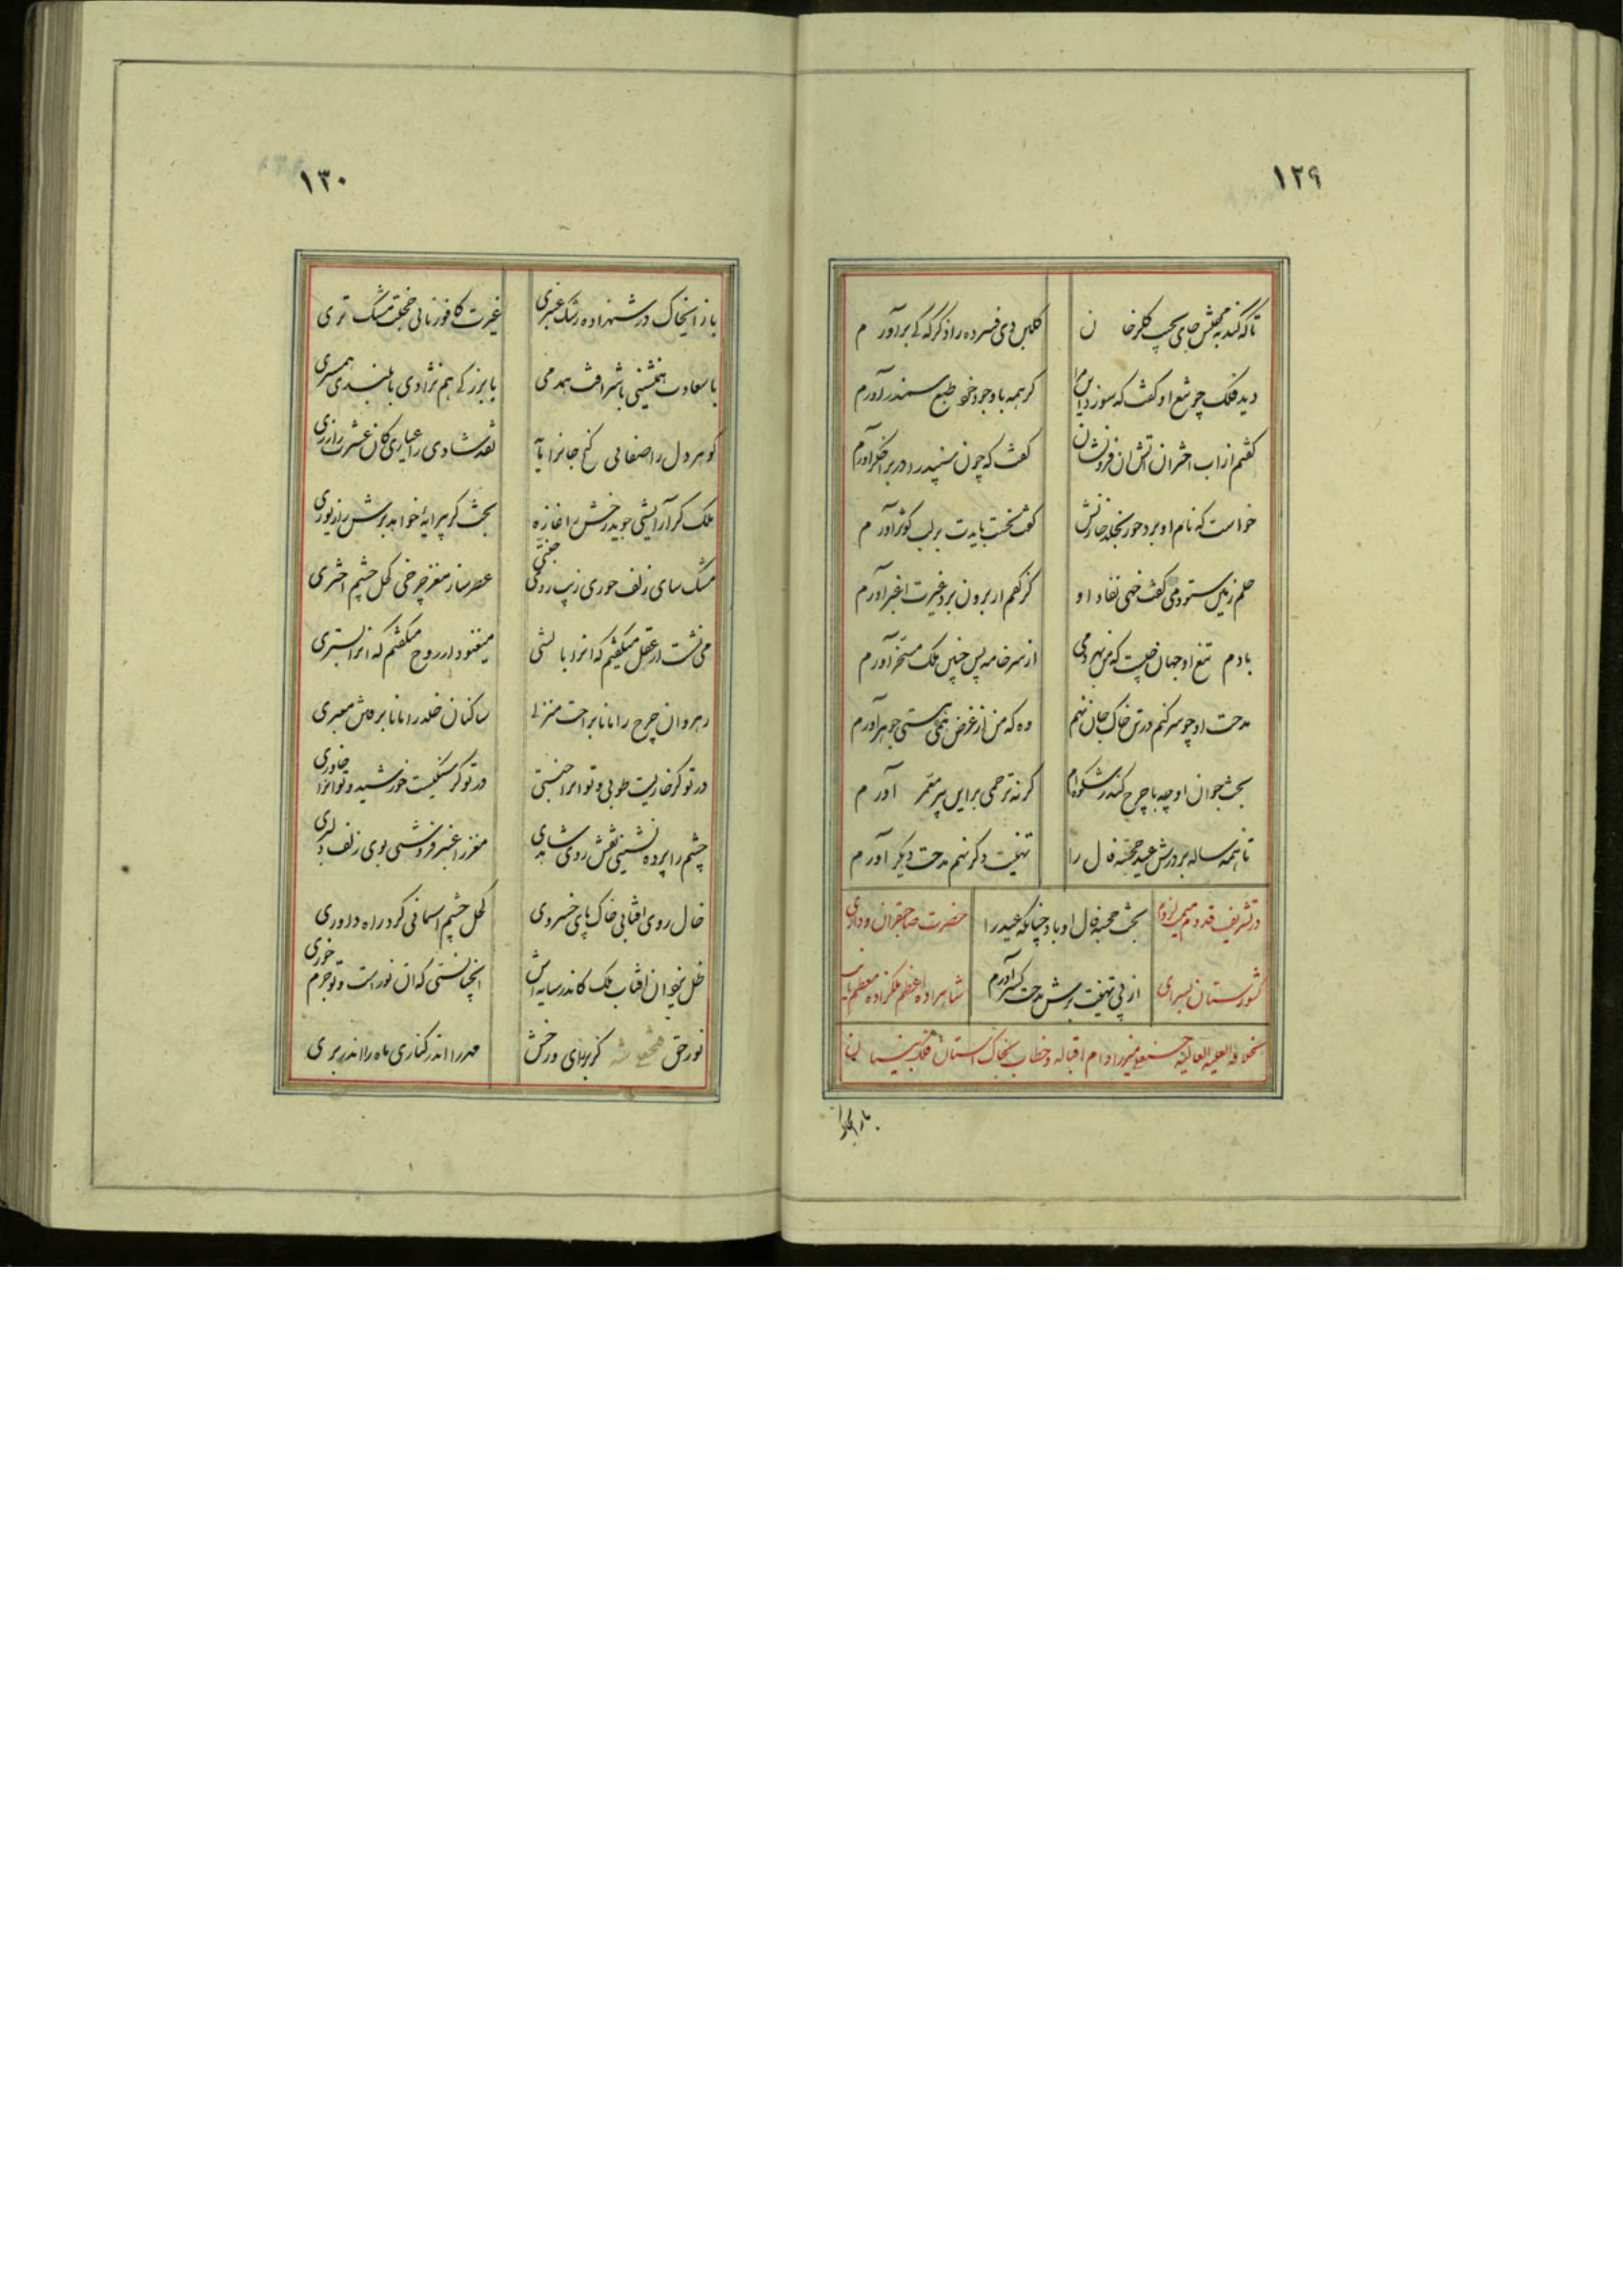 ۱۲۹
تا که کند به مجلسش جای بچپ کلرخا ن
کلبن دی فسرده را ذکر که کی برآور م
دید فلک چو شمع او کفت که سوزد این
کر همه با وجود خود طبع سمندر آورم
کفتم از آب اختران آتش ان فرونشان
کفت که چون سپند را در بر اخکر آورم
خواست که نام او برد حور بخلد خازنش
کفت نخست بایدت بر لب کوثر آور م
حلم زمین ستود می کفت نفاد او
کز کفم ار برون برد غیرت اغبر آورم
بادم تیغ او جهان
از سر خامه پس چنین ملک مسخر آورم
مدحت او چو سر کنم در تن خاک جان نهم
وه که من از عرض همی هستی جوهر آورم
بخت جوان او چه با چرخ کند ز شکوه
کرنه ترحمی بر این پیر معمر آور م
تا همه ساله بر درش عید خجسته فال را
تهنیت دکر نهم مدحت دیکر آور م
بخت خجسته فال او باد چنانکه عید را
از پی تهنیت برش مدحت آورم
در تشریف قدوم میمنت لزوم
حضرت صاحبقران و
شاهزاده اعظم ملکزاده معظم
العلیه العالیه میرزا دام اقباله و خطاب بخاک آستان فلک
باز ایخاک
۱۳۰
باز ایخاک در شهزاده رشک عنبری
غیرت کافور نابی خجلت مشک تری
با سعادت همنشینی با شرافت همدمی
با بزرکی هم نژادی با بلندی همسری
کوهر دل را صفایی کنج جانرا
نقد شادی را عیاری کان عشرت را زری
ملک کر آرایشی جوید رخش را غازه
بخت کر پیرایهٔ خواهد برش را زیوری
مشک سای زلف حوری زیب روی جنتی
عطرساز مغز چرخی کحل چشم اختری
می نشست ار عقل میکفتم که انرا بالشی
میغنود ار روح میکفتم که انرا بستری
رهروان چرخ را مانا براحت منزلی
ساکنان خلد را مانا برامش معبری
در تو کر خاریست طوبی و تو انرا جنتی
در تو کر سنکیست خورشید و تو انرا خاوری
چشم را پرده نشینی نقش روی شاهدی
مغز را عنبر فروشی بوی زلف دلبری
خال روی افتابی خاک پای خسروی
کحل چشم اسمانی کرد راه داوری
ظل یزدان افتاب ملک کاندر سایه اش
انچنانستی که ان نور است و تو جرم خوری
نور حق شه کز برای رخش
مهر را اندر کناری ماه را اندر بری